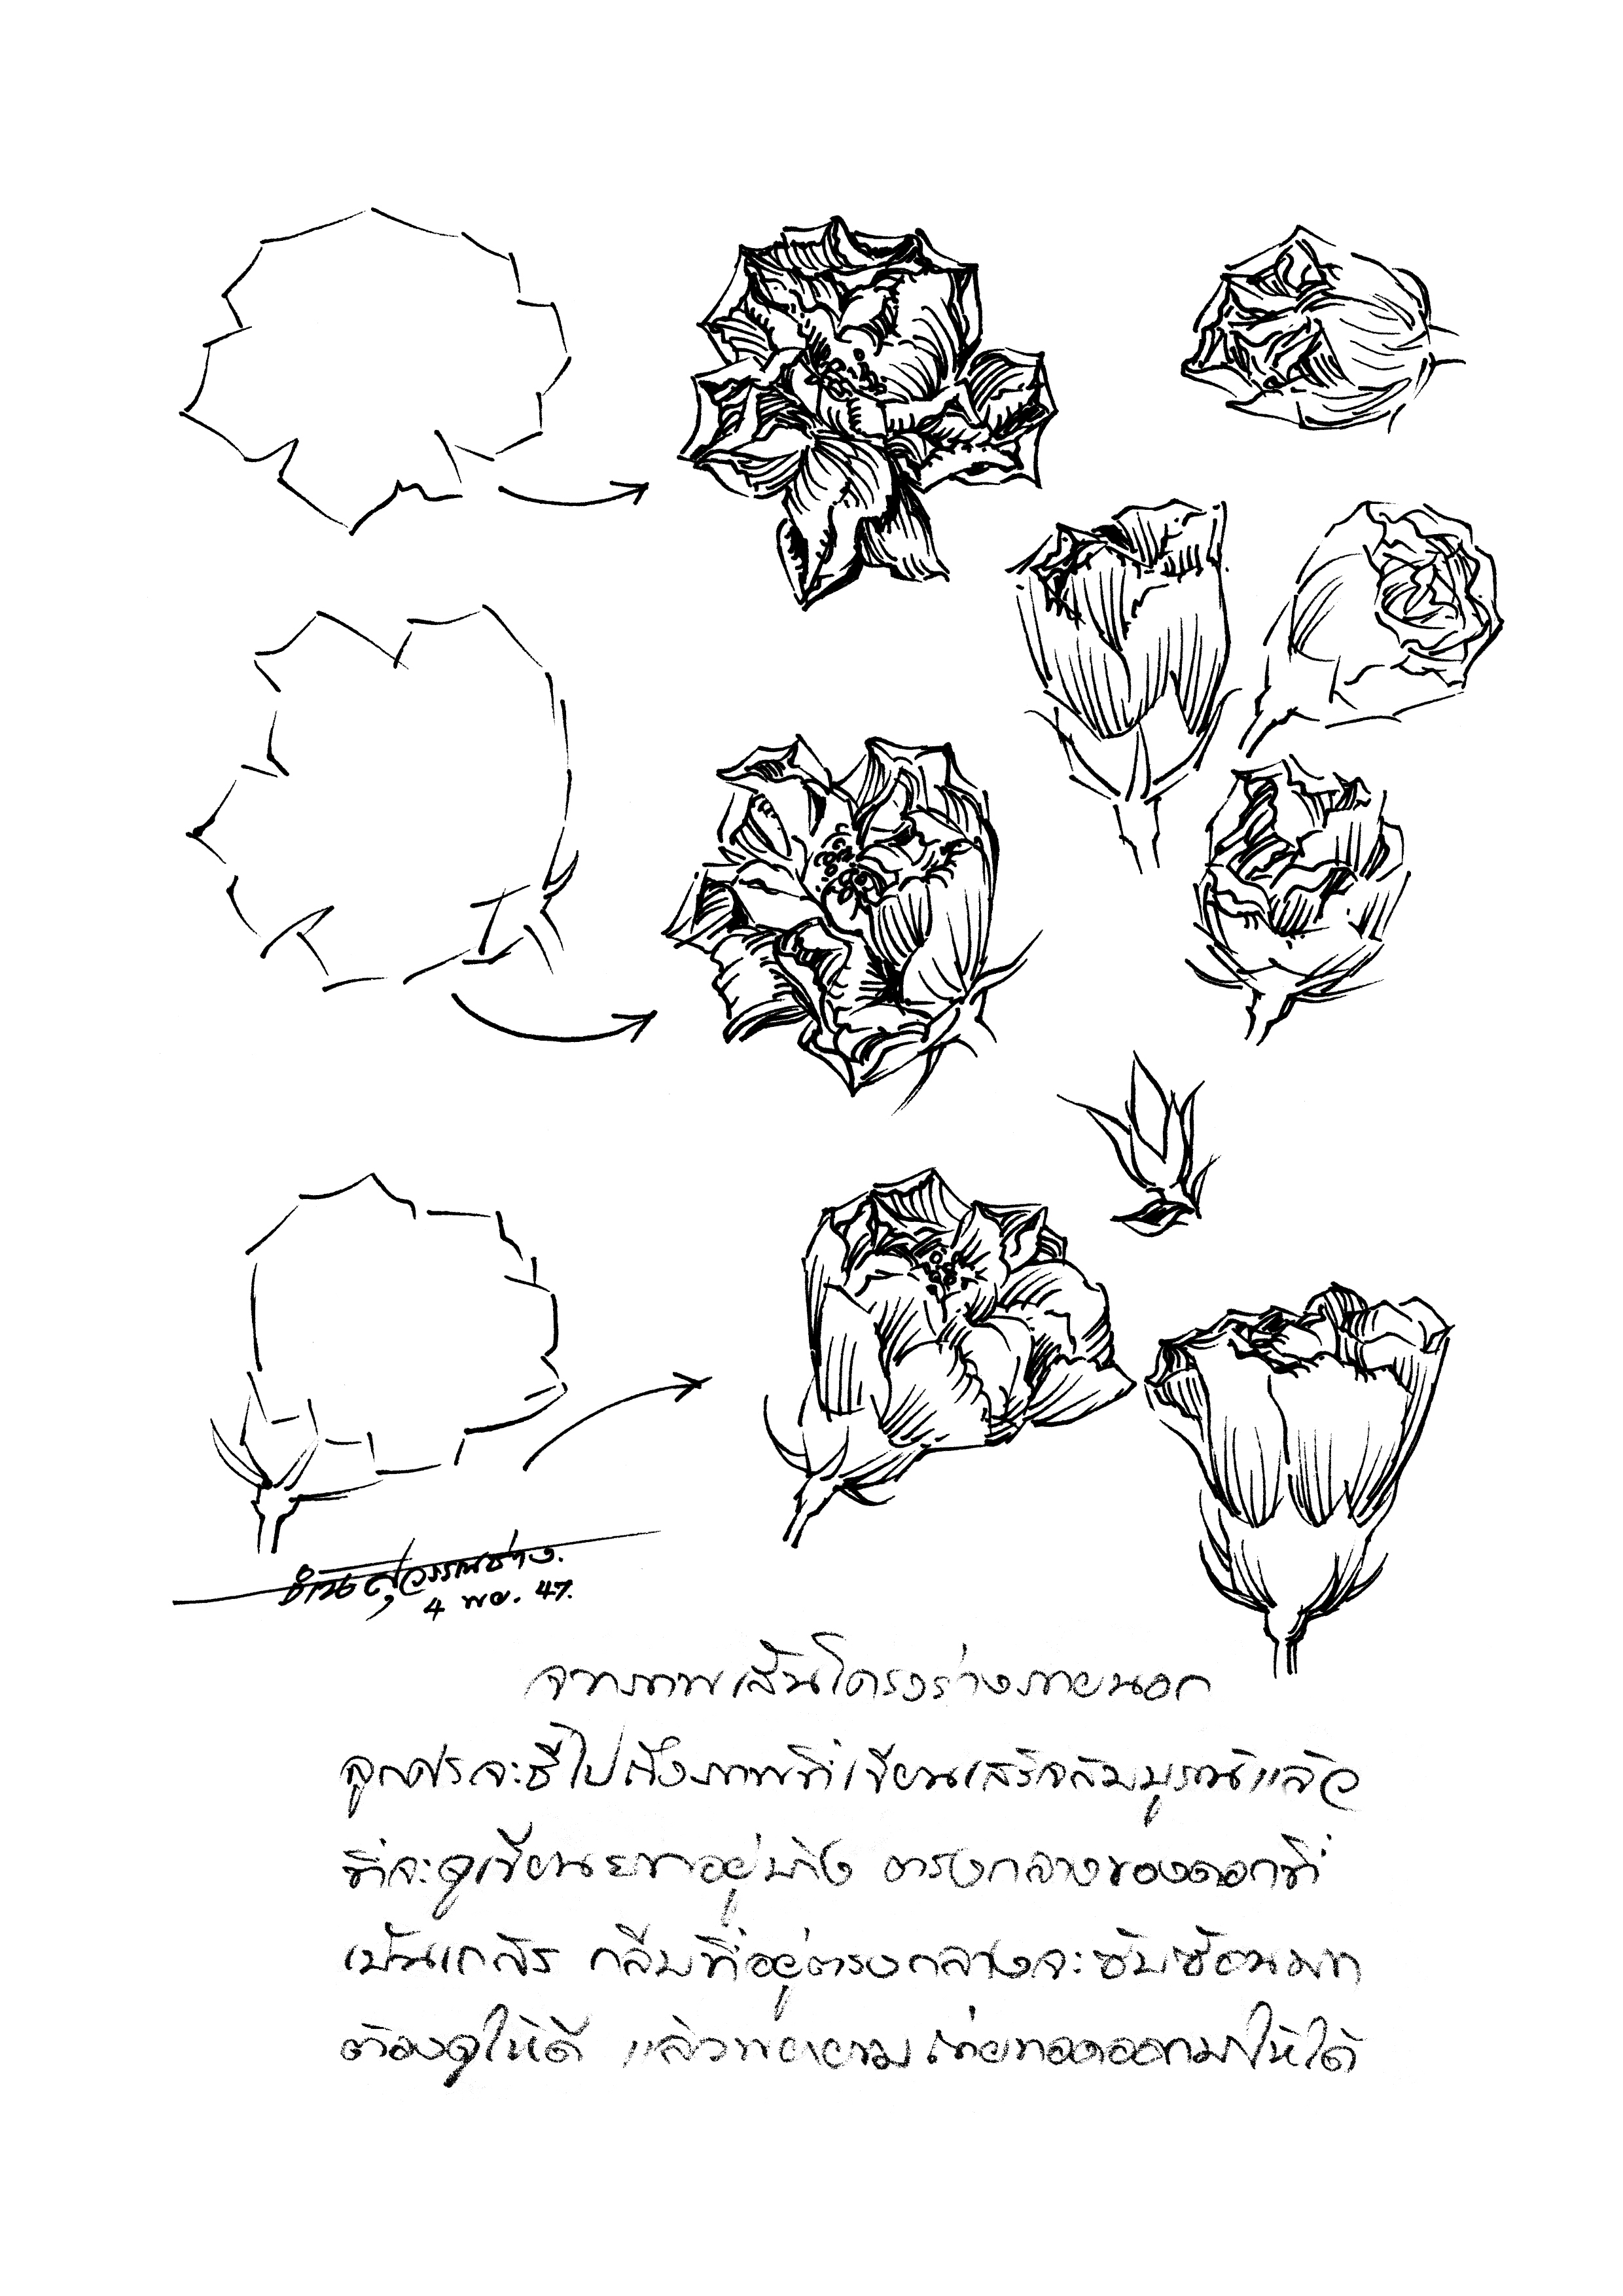 สุวรรณช่าง.
4 พย. 47.
จากภาพเส้นโครงร่างภายนอก
ลูกศรจะชี้ไปถึงภาพที่เขียนเสร็จสมบูรณ์แล้ว
ที่จะดูเขียนยากอยู่บ้าง ตรงกลางของดอกที่
เป็นเกสร กลีบที่อยู่ตรงกลางจะซับซ้อนมาก
ต้องดูให้ดี แล้วพยายามถ่ายทอดออกมาให้ได้